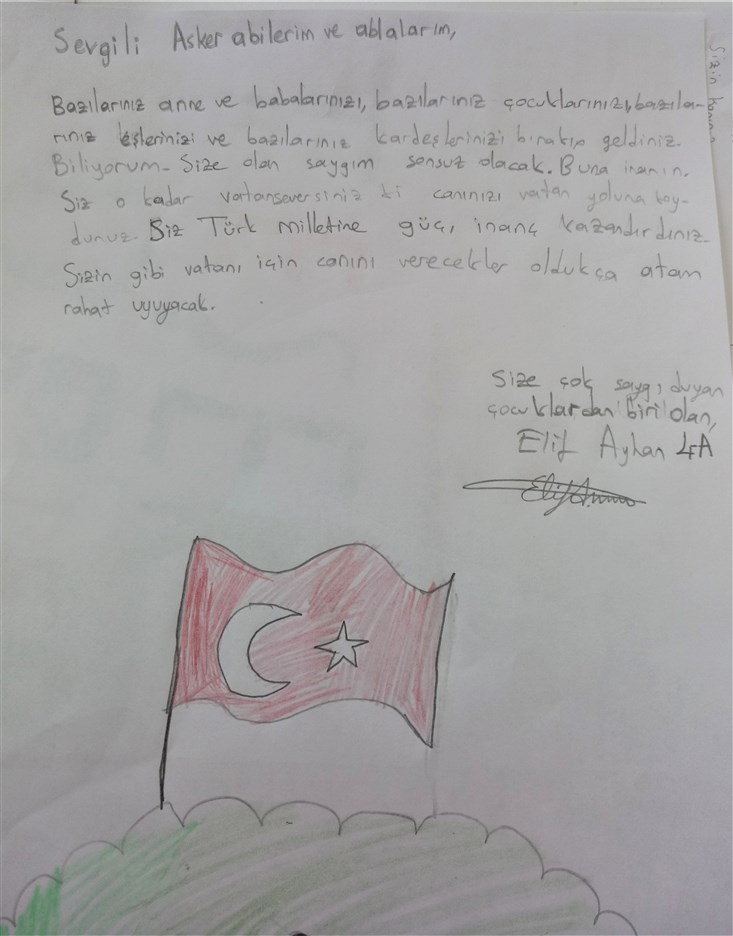 Sevgili Asker abilerim ve ablalarım,
Bazılarınız anne ve babalarınızı, bazılarınız çocuklarınızı, bazıla-
rınız eşlerinizi ve bazılarınız kardeşlerinizi bırakıp geldiniz.
Biliyorum. Size olan saygım sonsuz olacak. Buna inanın.
Siz o kadar vatanseversiniz ki canınızı vatan yoluna koy-
dunuz. Siz Türk milletine güç, inanç kazandırdınız.
Sizin gibi vatanı için canını verecekler oldukça atam
rahat uyuyacak.
Size çok saygı duyan
çocuklardan biri olan,
Elif Ayhan 4A
Sizin